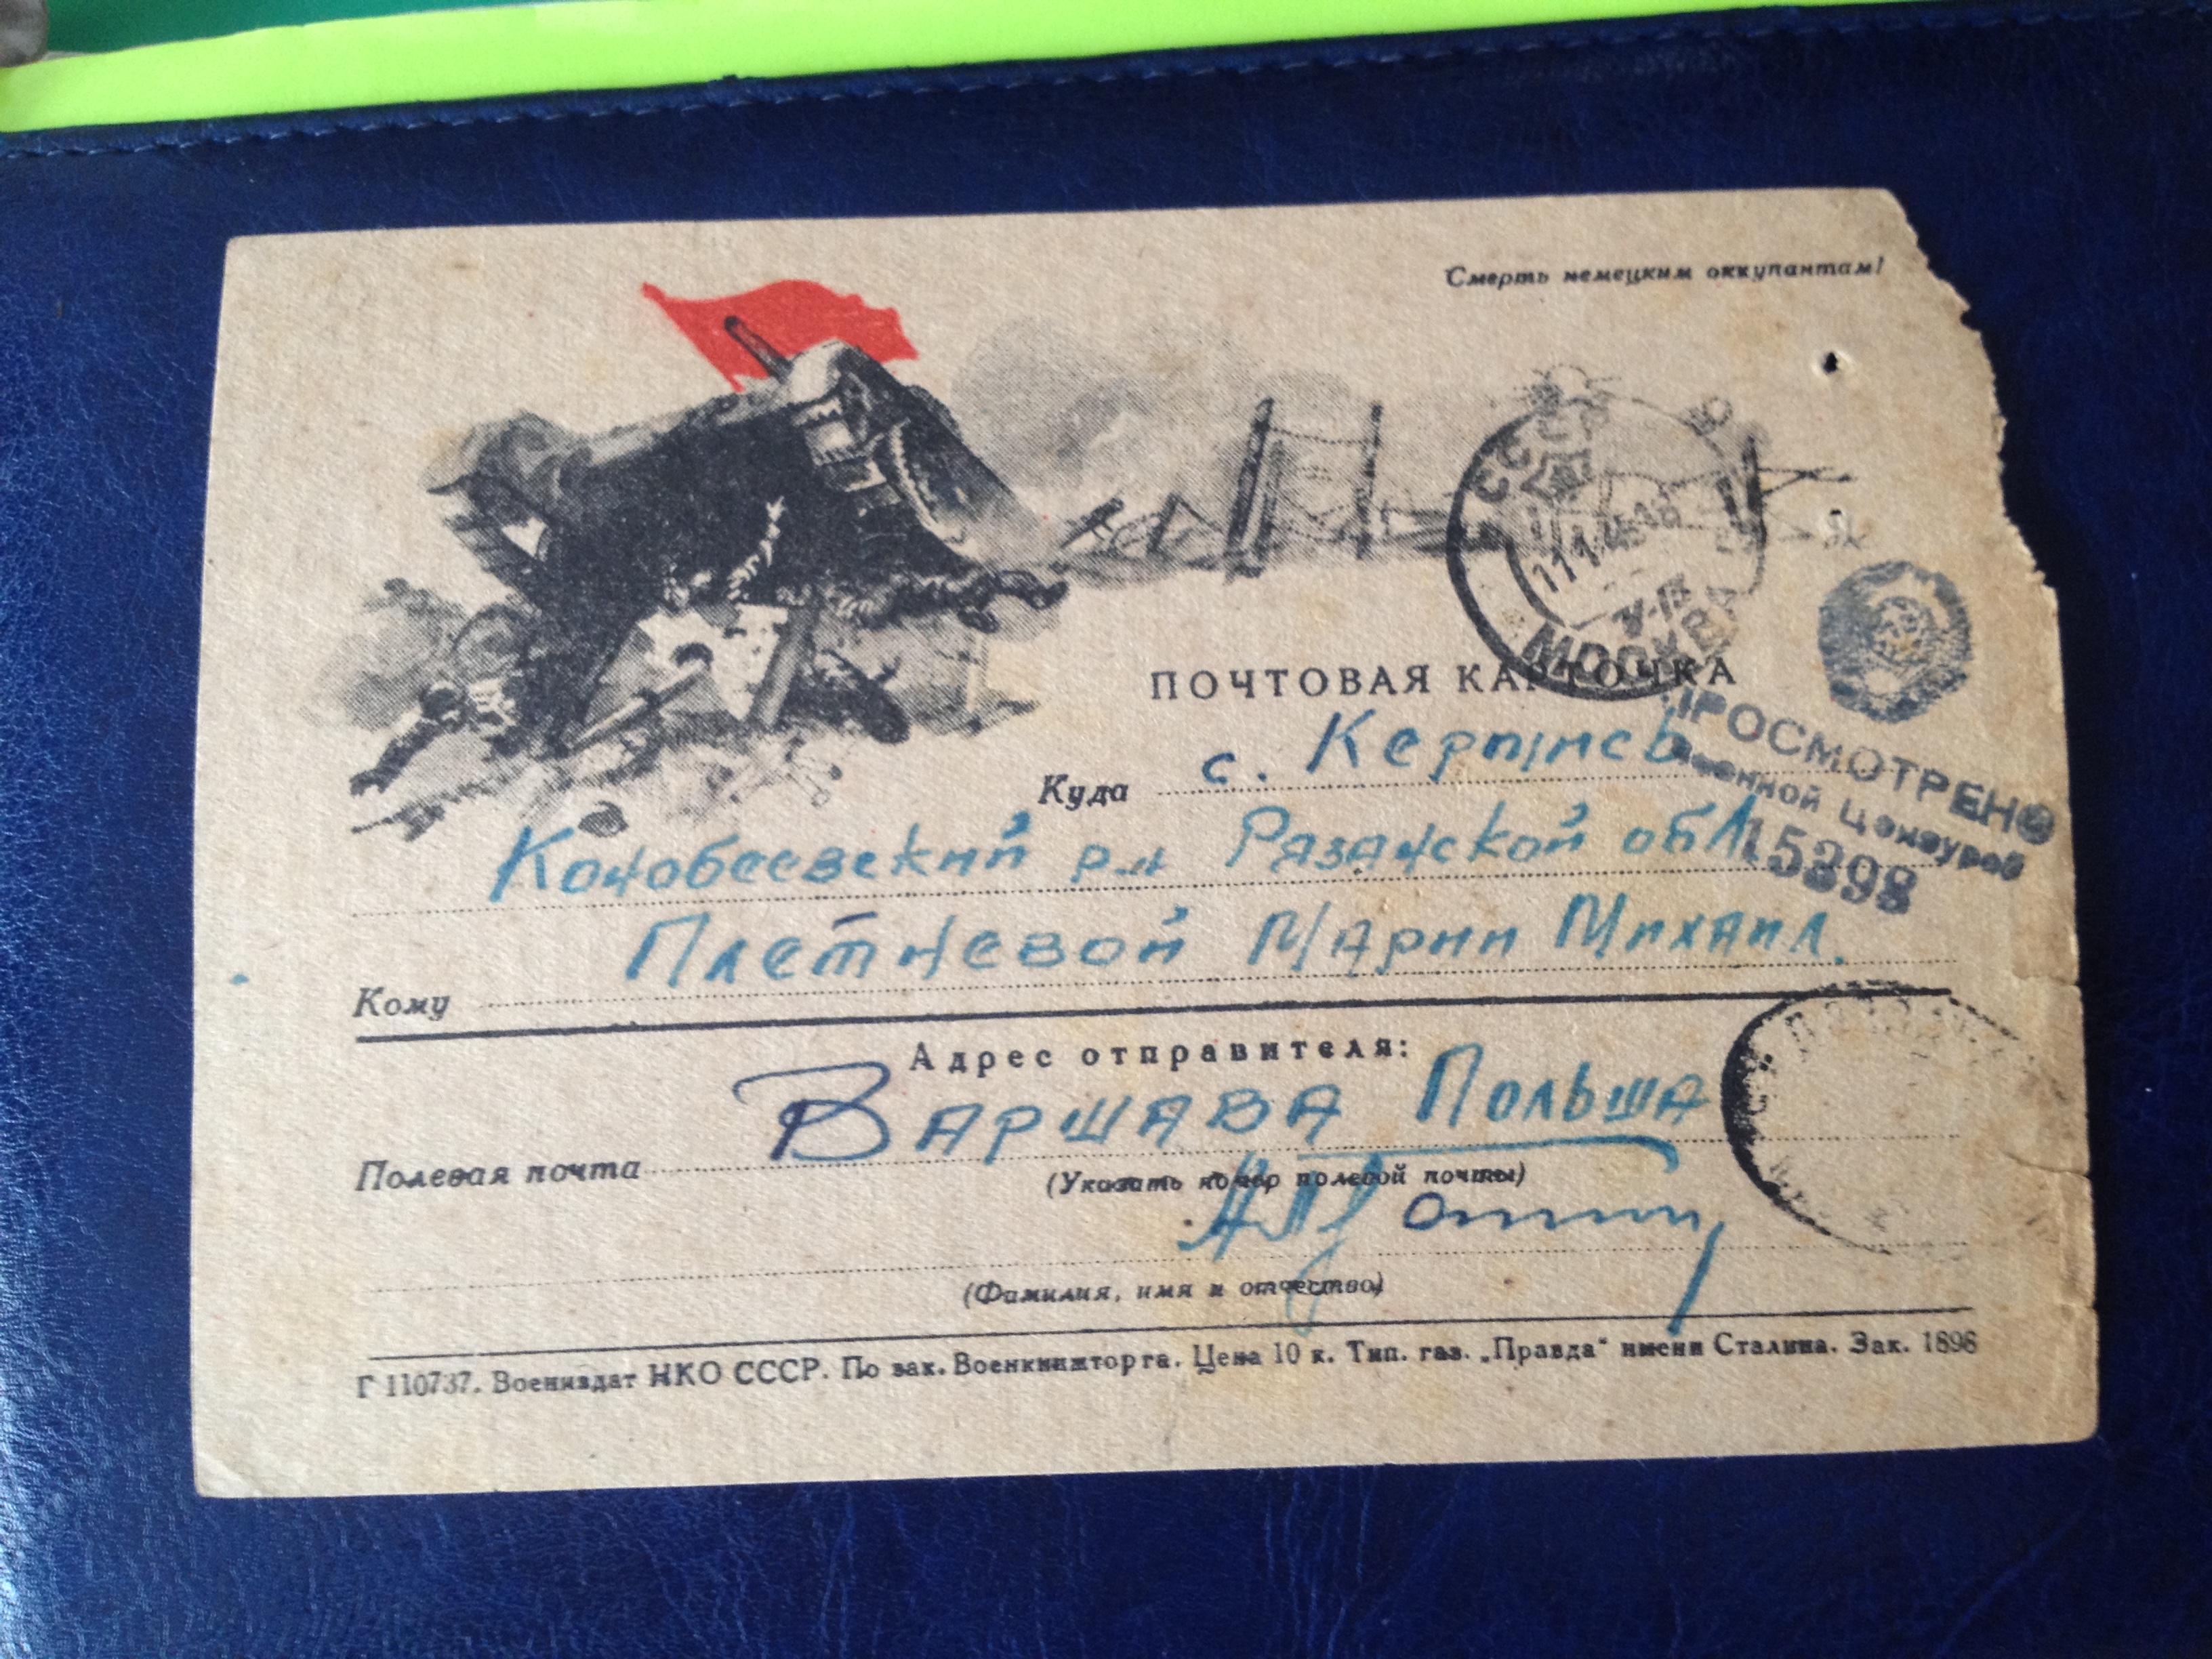 Смерть немецким оккупантам!
СССР
МОСКВА
ПОЧТОВАЯ КАРТОЧКА
ПРОСМОТРЕНО
Военной Цензурой
15398
Куда с.
Конобеевский р-н Рязанской обл.
Кому Плетневой Марии Михаил.
Адрес отправителя:
Полевая почта Варшава Польша
(Указать номер полевой почты)
(Фамилия, имя и отчество)
Г 110737. Воениздат НКО СССР. По зак. Военкнижторга. Цена 10 к. Тип. газ. „Правда“ имени Сталина. Зак. 1898